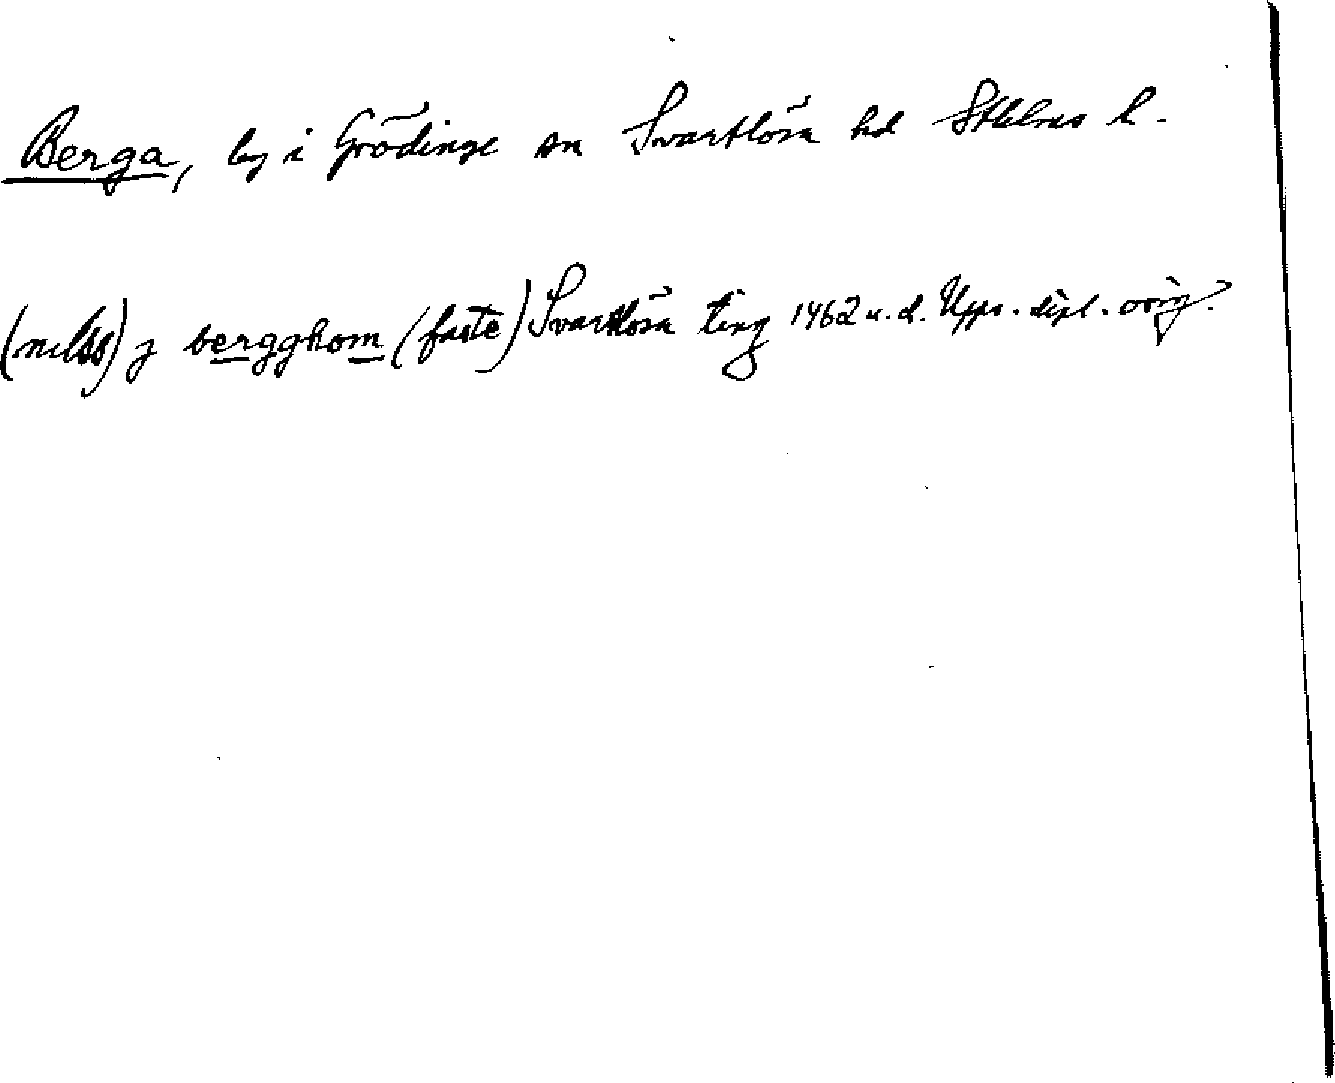 Berga, by i Grödinge sn Svartlösa hd Sthlms l.
(nilss) j bergghom (faste) Svartlösa ting 1462 u.d. Upps. dipl. orig.